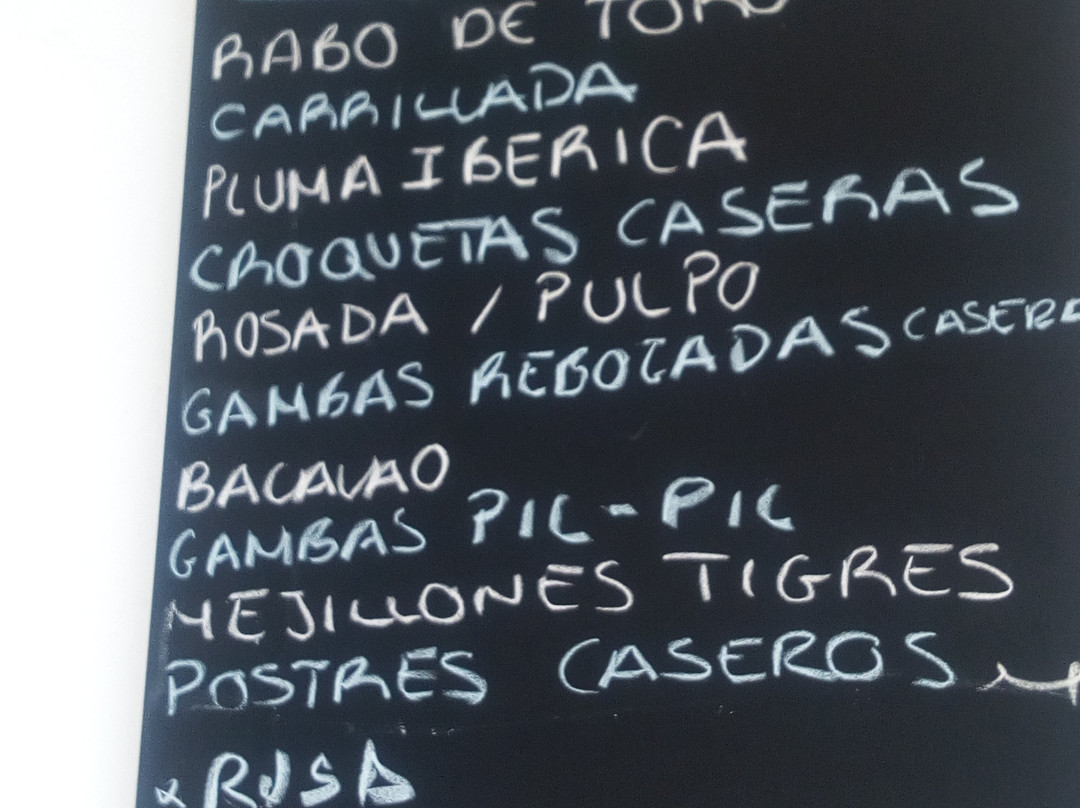 RABO DE TORO
CARRILLADA
PLUMA IBERICA
CROQUETAS CASERAS
ROSADA / PULPO
GAMBAS REBOZADAS CASERA
BACALAO
GAMBAS PIL-PIL
MEJILLONES TIGRES
POSTRES CASEROS